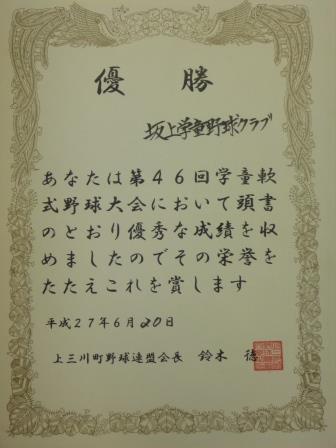 優勝
坂上学童野球クラブ
あなたは第46回学童軟
式野球大会において頭書
のとおり優秀な成績を収
めましたのでその栄誉を
たたえこれを賞します
平成27年6月20日
上三川町野球連盟会長 鈴木 徳